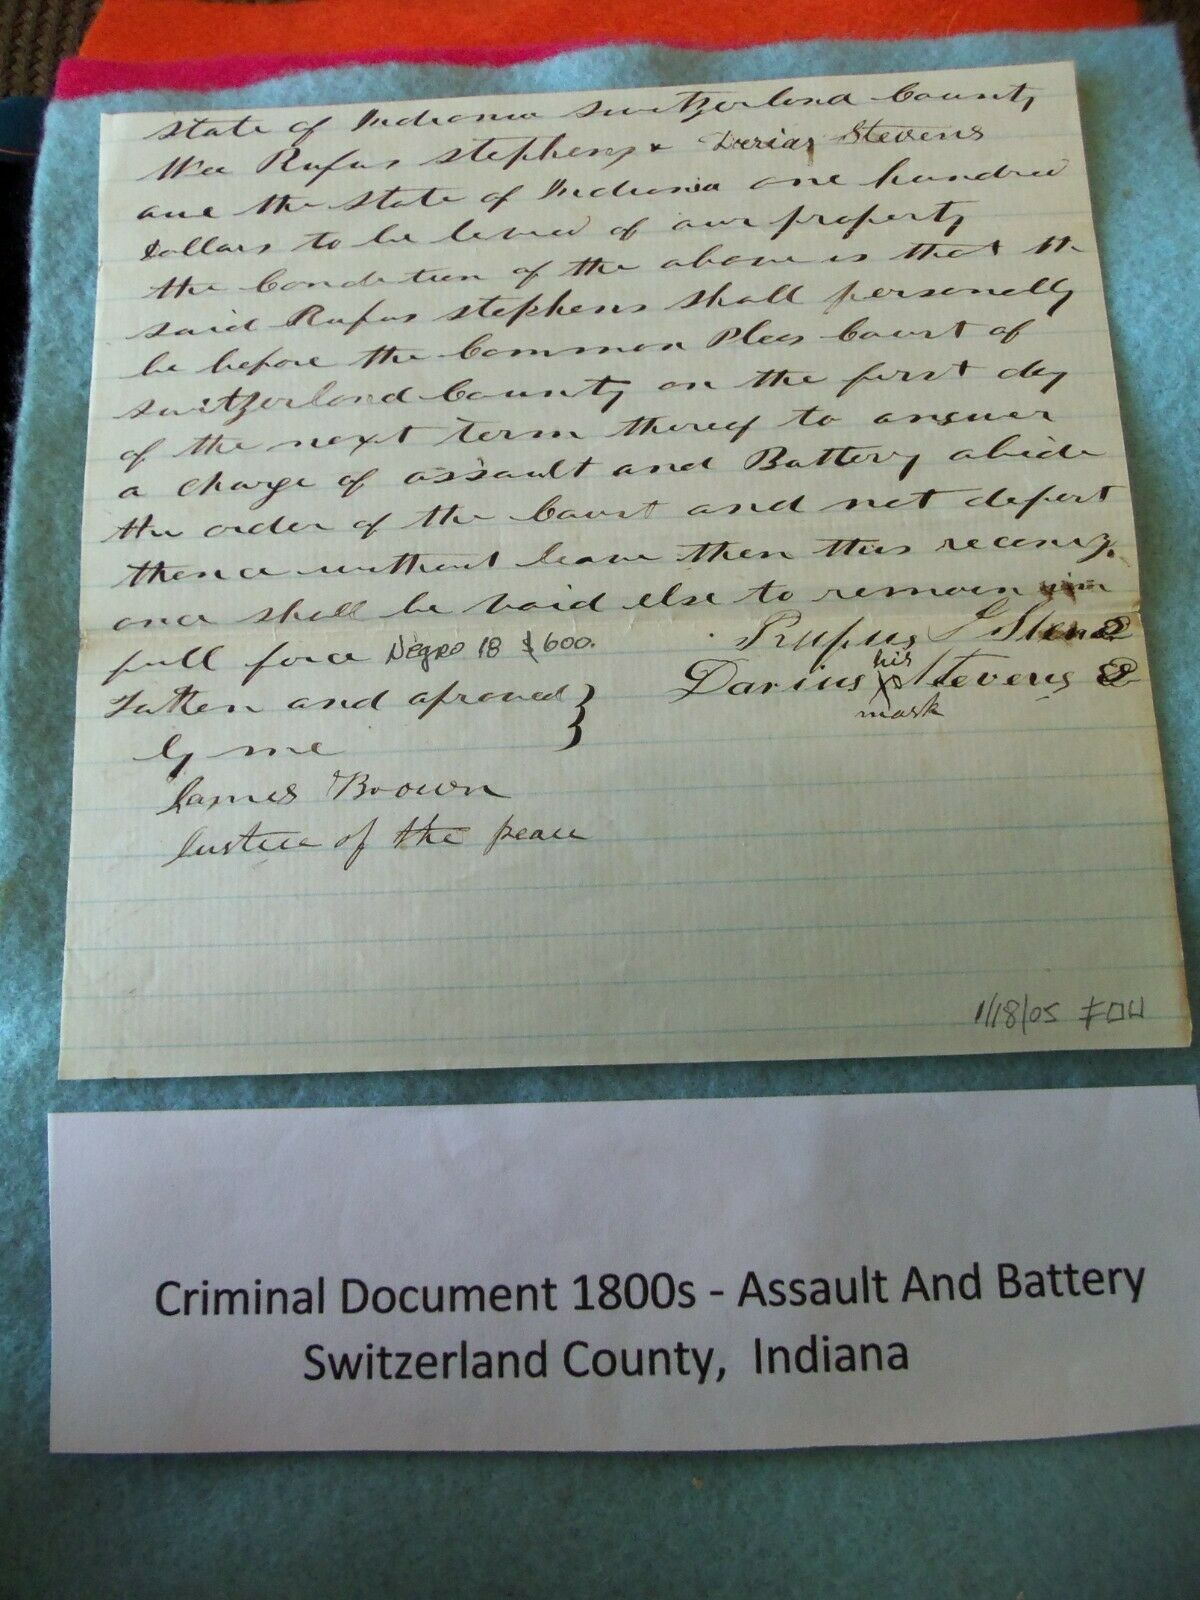 state of Indiana Switzerland County
Wee Rufus Stephens & Derias Stevens
aue the state of Indiana one hundred
Dollars to be levied of aur property
the Condetion of the above is that the
said Rufus stephens shall personelly
be before the Common Pleas Court of
switzerland County on the first day
of the next term thereof to answer
a Charge of assault and Battery abide
the order of the Court and not depart
thence without leave then this recogniz
ance shall be void else to remain in
full force Negro 18 $600.
Rufus
Darius his Stevens
mark
Taken and aproved
by me
James Brown
Justice of the peace
1/18/05
Criminal Document 1800s - Assault And Battery
Switzerland County, Indiana